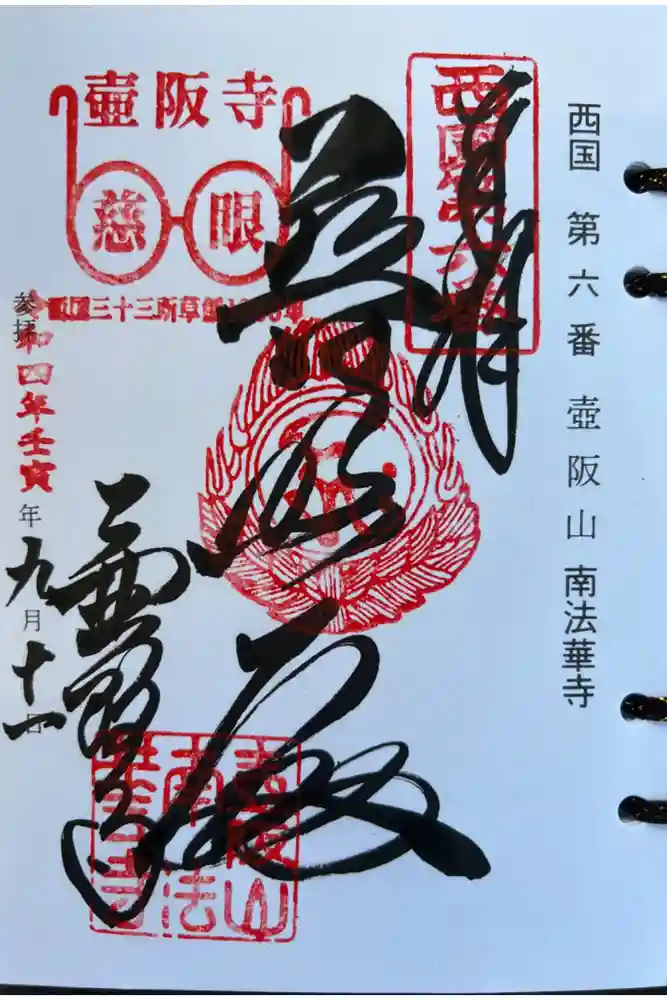 西国 第六番 壺阪山 南法華寺
西国第六番
普照殿
壺阪寺
慈眼
西国三十三所草創1300年
参拝
令和四年壬寅年九月十一日
壺阪山
南法
華寺